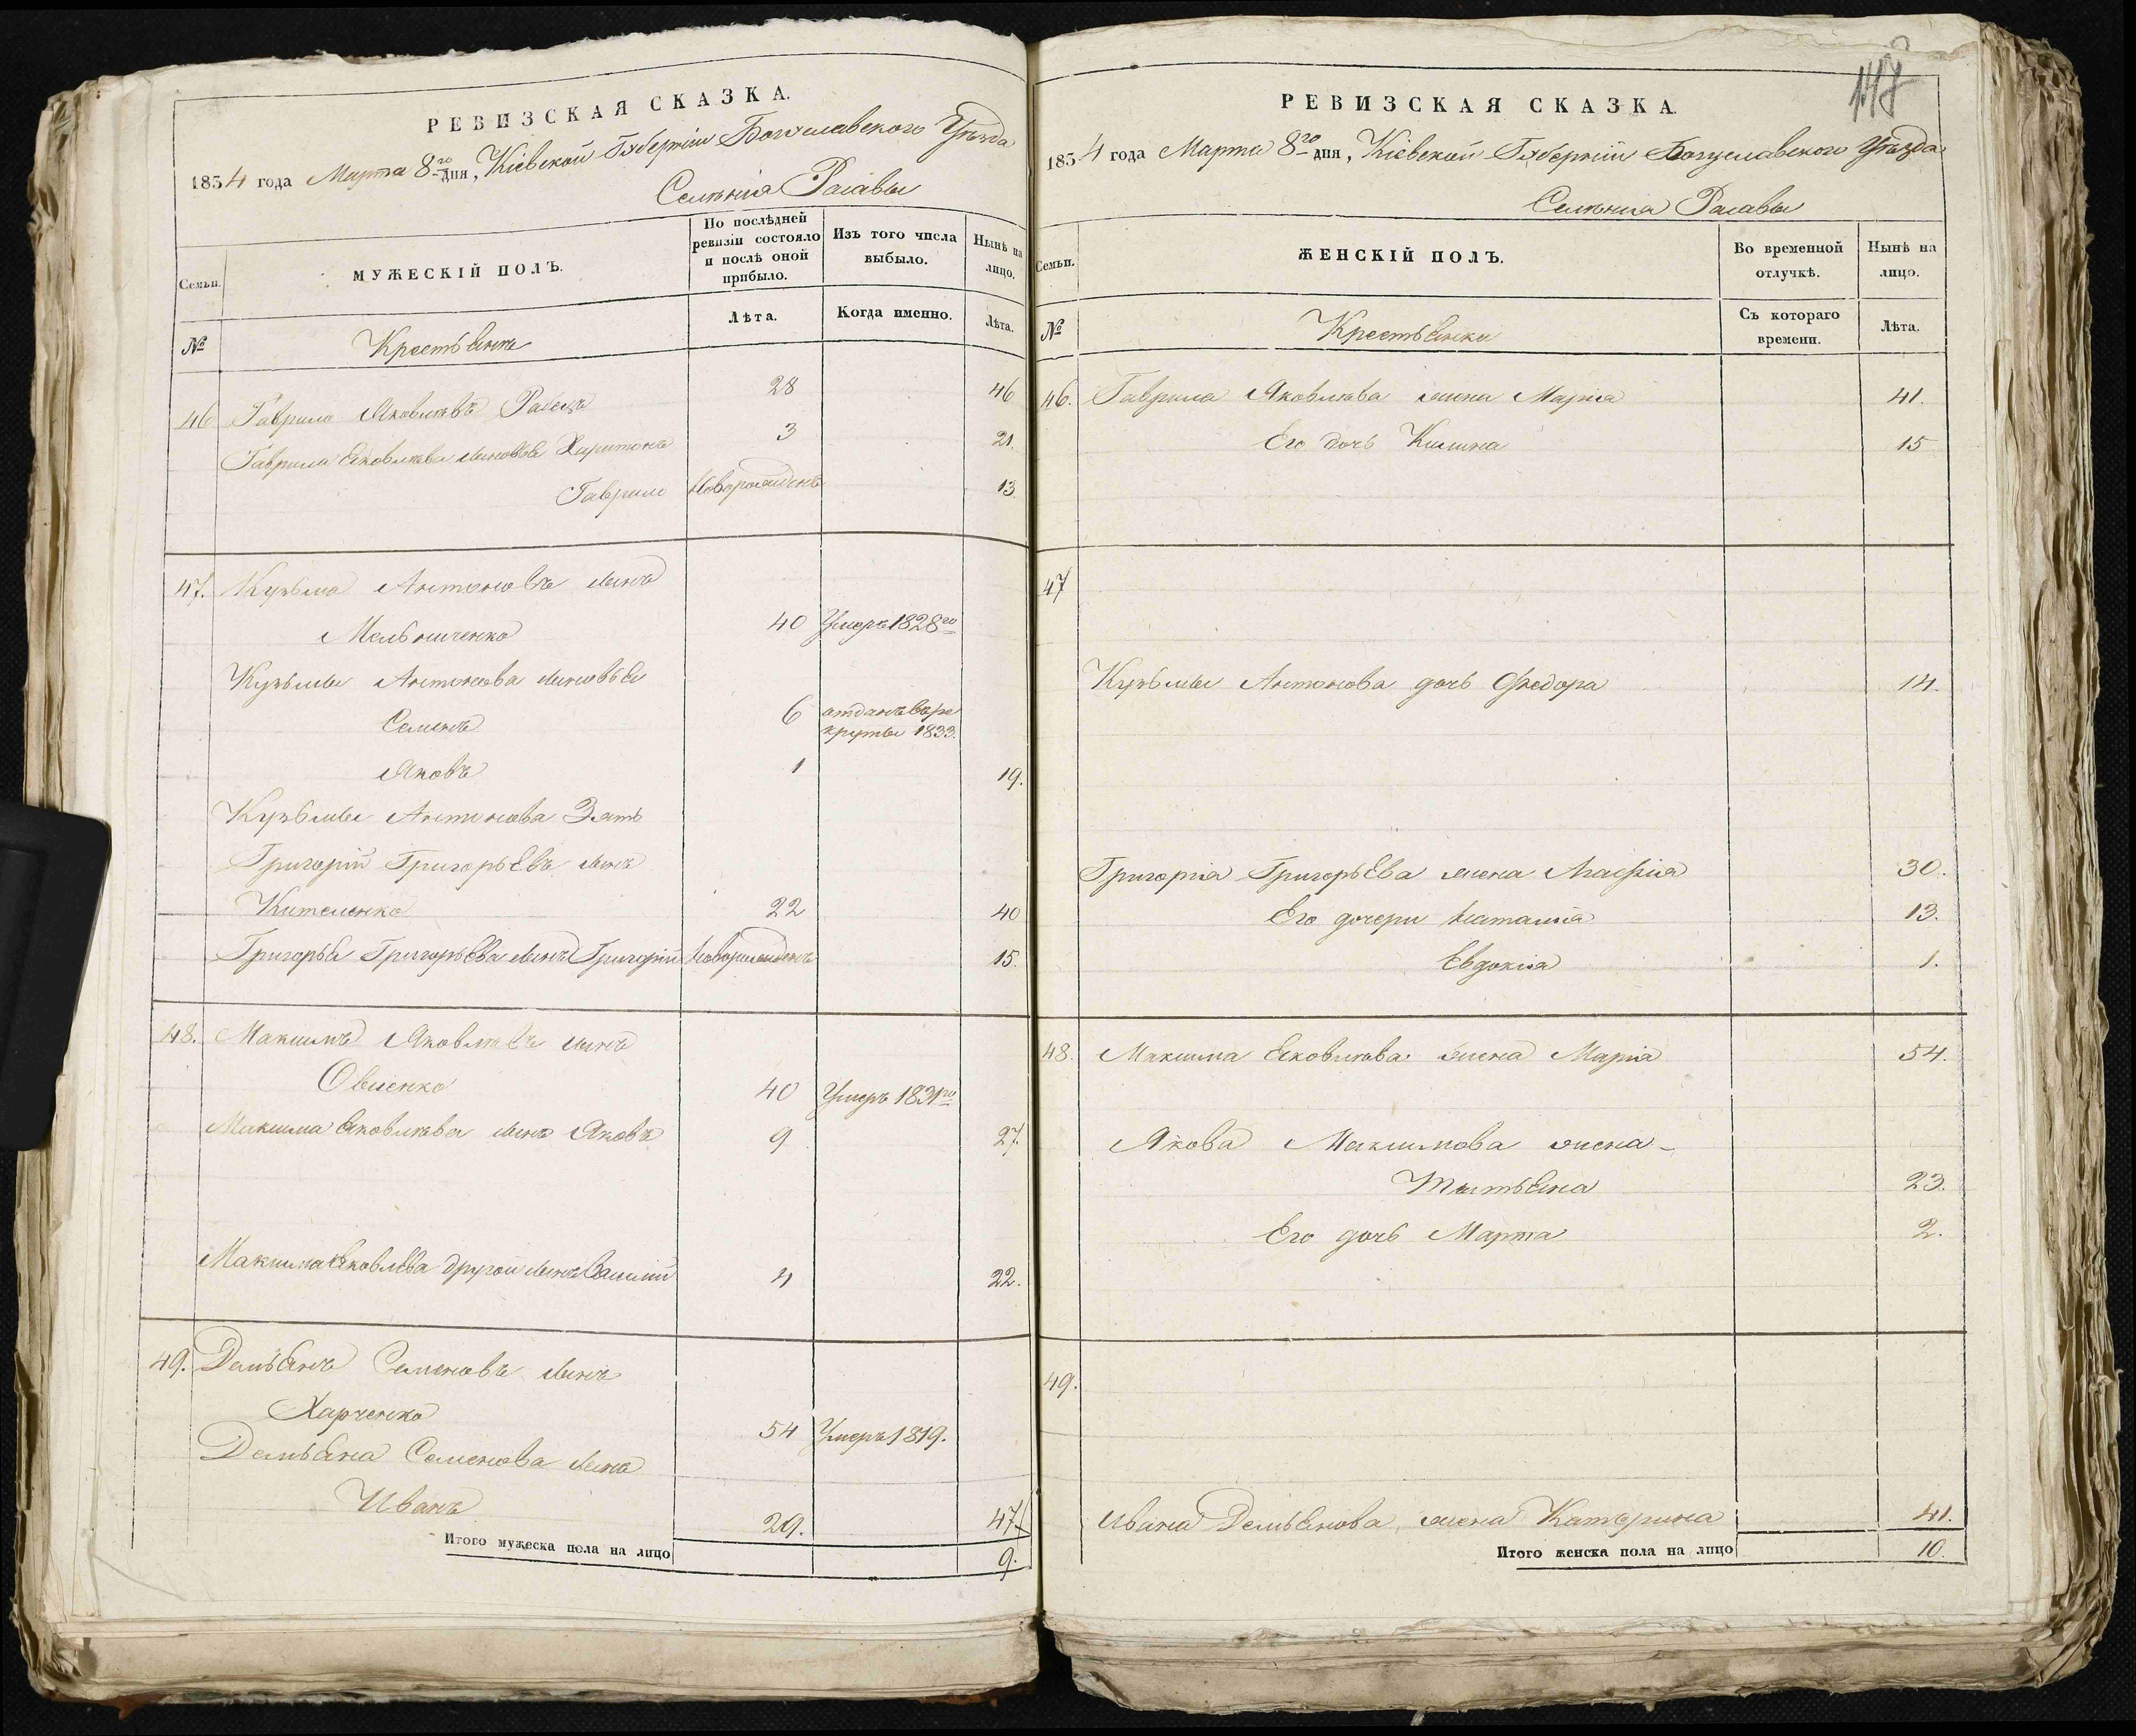 РЕВИЗСКАЯ СКАЗКА.
1834 года Марта 8го дня, Кіевской Губерніи Богуславского Уѣзда
Селѣнія Расавы
Семьи.
МУЖЕСКІЙ ПОЛЪ.
По послѣдней ревизіи состояло и послѣ оной прибыло.
Изъ того числа выбыло.
Нынѣ на лицо.
№
Крестьяне
Лѣта.
Когда именно.
Лѣта.
46 Гаврило Яковлевъ 28 46
Гаврила Яковлева сыновья Харитонъ 3 21.
Гаврило Новорожденъ 13
47. Кузьма Антоновъ сынъ
Мельниченко 40 Умеръ 1828го
Кузьмы Антонова сыновья
Семенъ 6 отданъ въ ре
круты 1833.
Яковъ 1 19.
Кузьмы Антонова Зять
Григорій Григорьевъ сынъ
22 40
Григорья Григорьева сынъ Григорій Новорожденъ 15.
48. Максимъ Яковлевъ сынъ
Овсіенко 40 Умеръ 1831го
Максима Яковлева сынъ Яковъ 9 27.
Максима Яковлева другой сынъ Василій 4 22.
49. Демьянъ Семеновъ сынъ
Харченко 54 Умеръ 1819.
Демьяна Семенова сынъ
Иванъ 29. 47.
Итого мужеска пола на лицо 9.
147
РЕВИЗСКАЯ СКАЗКА.
1834 года Марта 8го дня, Кіевской Губерніи Богуславского Уѣзда
Селѣнія Расавы
Семьи.
ЖЕНСКІЙ ПОЛЪ.
Во временной отлучкѣ.
Нынѣ на лицо.
№
Крестьянки
Съ котораго времени.
Лѣта.
46. Гаврила Яковлева жена Марія 41.
Его дочь Килина 15
47
Кузьмы Антонова дочь Федора 14.
Григорія Григорьева жена 30.
Его дочери Наталія 13.
Евдокія 1.
48. Максима Яковлева жена Марія 54.
Якова Максимова жена
Татьяна 23.
Его дочь Марта 2.
49.
Ивана Демьянова жена Катерина 41.
Итого женска пола на лицо 10.